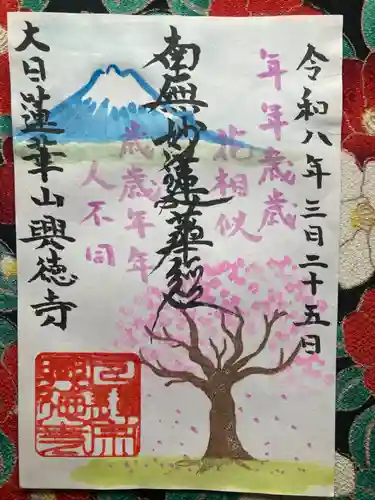 令和八年三日二十五日
年年歳歳
花相似
南無妙法蓮華経
歳歳年年
人不同
大日蓮華山興徳寺